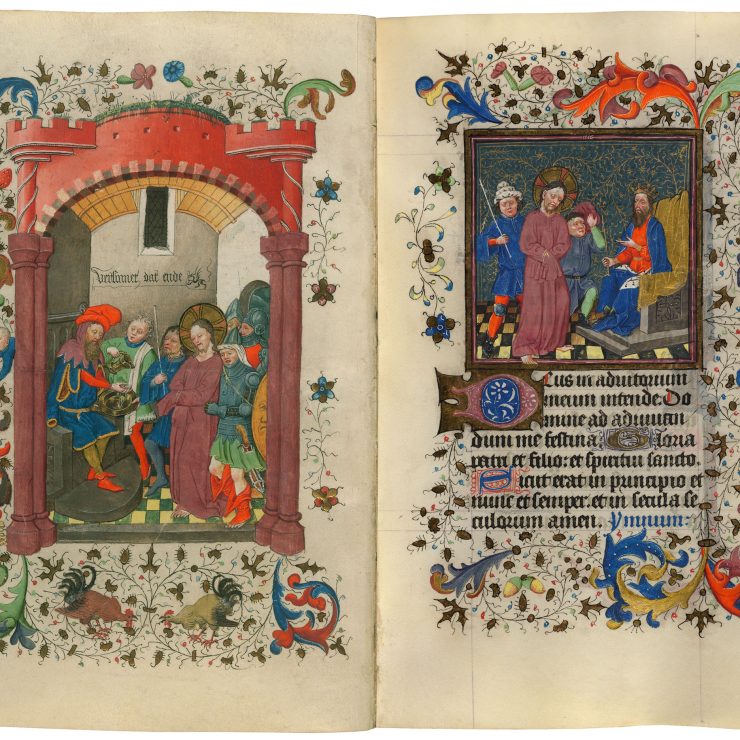 Versinnet dat ende
Deus in adiutorium
meum intende. Do
mine ad adiuuan
dum me festina. Gloria
patri et filio: et spiritui sancto.
Sicut erat in principio et
nunc et semper. et in secula se
culorum amen. Ymnum: